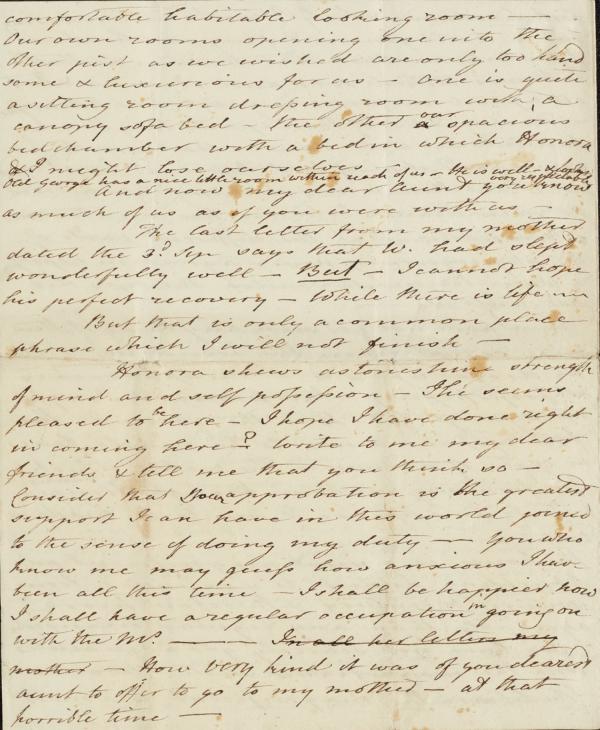 comfortable habitable looking room —
Our own rooms opening one into the
other just as we wished are only too hand
some & luxurious for us — One is quite
a sitting room dressing room with a
canopy sofa bed — the other our spacious
bedchamber with a bed in which Honora
& I might lose ourselves
Old George has a nice little room within reach of us — He is well & looks very respectable
And now my dear Aunt you know
as much of us as if you were with us —
The last letter from my mother
dated the 3d Sep says that W. had slept
wonderfully well — But — I cannot hope
his perfect recovery — While there is life —
But that is only a common place
phrase which I will not finish —
Honora shews astonishing strength
of mind and self possession — She seems
pleased to be here — I hope I have done right
in coming here —? Write to me my dear
friends & tell me that you think so —
Consider that Your approbation is the greatest
support I can have in this world joined
to the sense of doing my duty — You who
know me may guess how anxious I have
been all this time — I shall be happier now
I shall have a regular occupation in going on
with the Ms ——— In all her letters my
mother — How very kind it was of you dearest
aunt to offer to go to my mother — at that
horrible time —